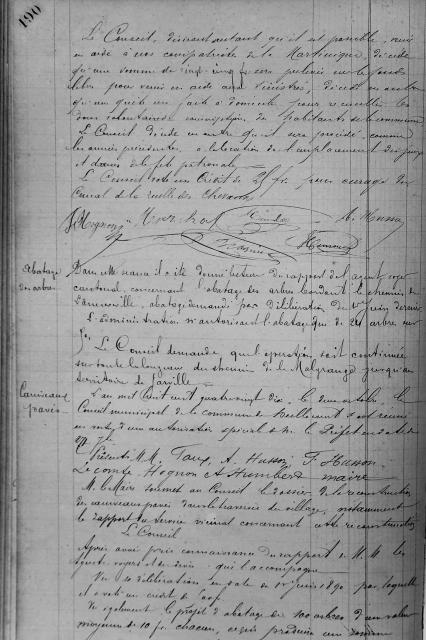 190
Le Conseil, désirant autant qu'il est possible, venir
en aide à nos compatriotes de la Martinique, décide
qu'une somme de vingt-cinq francs prélevée sur les fonds
libres pour venir en aide aux sinistrés, décide en outre
qu'une quête sera faite à domicile pour recueillir les
dons volontaires des habitants de la commune
Le Conseil décide en outre qu'il sera procédé comme
les années précédentes à la location de l'emplacement des jeux
et danses de la fête patronale
Le Conseil vote un crédit de 25 fr. pour curage du
canal de la ruelle des
Hognon
A. Husson
Abatage
des arbres
Dans cette séance il a été donné lecture du rapport de l'agent voyer
cantonal, concernant l'abatage des arbres bordant le chemin de
abatage demandé par délibération du 1er juin dernier
L'administration n'autorisant l'abatage que de 24 arbres sur
Le Conseil demande que l'opération soit continuée
sur toute la longueur du chemin de la Malgrange jusqu'au
territoire de Jarville
Caniveaux
pavés
L'an mil huit cent quatre vingt dix, le deux octobre, le
Conseil municipal de la commune de s'est réuni
en vertu d'une autorisation spéciale de M. le Préfet en date du
Présents M.M. Toux, A. Husson, F. Husson
Lecomte Hognon et Humbert maire
M. le Maire soumet au Conseil le dossier de la reconstruction
de caniveaux pavés dans la traverse du village, notamment
le rapport du service vicinal concernant cette reconstruction
Le Conseil
Après avoir pris connaissance du rapport de M.M. les
agents voyers et du devis qui l'accompagne
Vu sa délibération en date du 1er juin 1890 par laquelle
il a voté un crédit de
Vu également le projet d'abatage de 100 arbres d'une valeur
moyenne de 10 fr. chacun, ce qui produira une somme